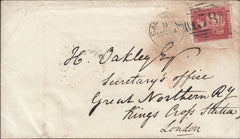 H. Oakley Esq
Secretary's office
Great Northern Ry
Kings Cross Station
London